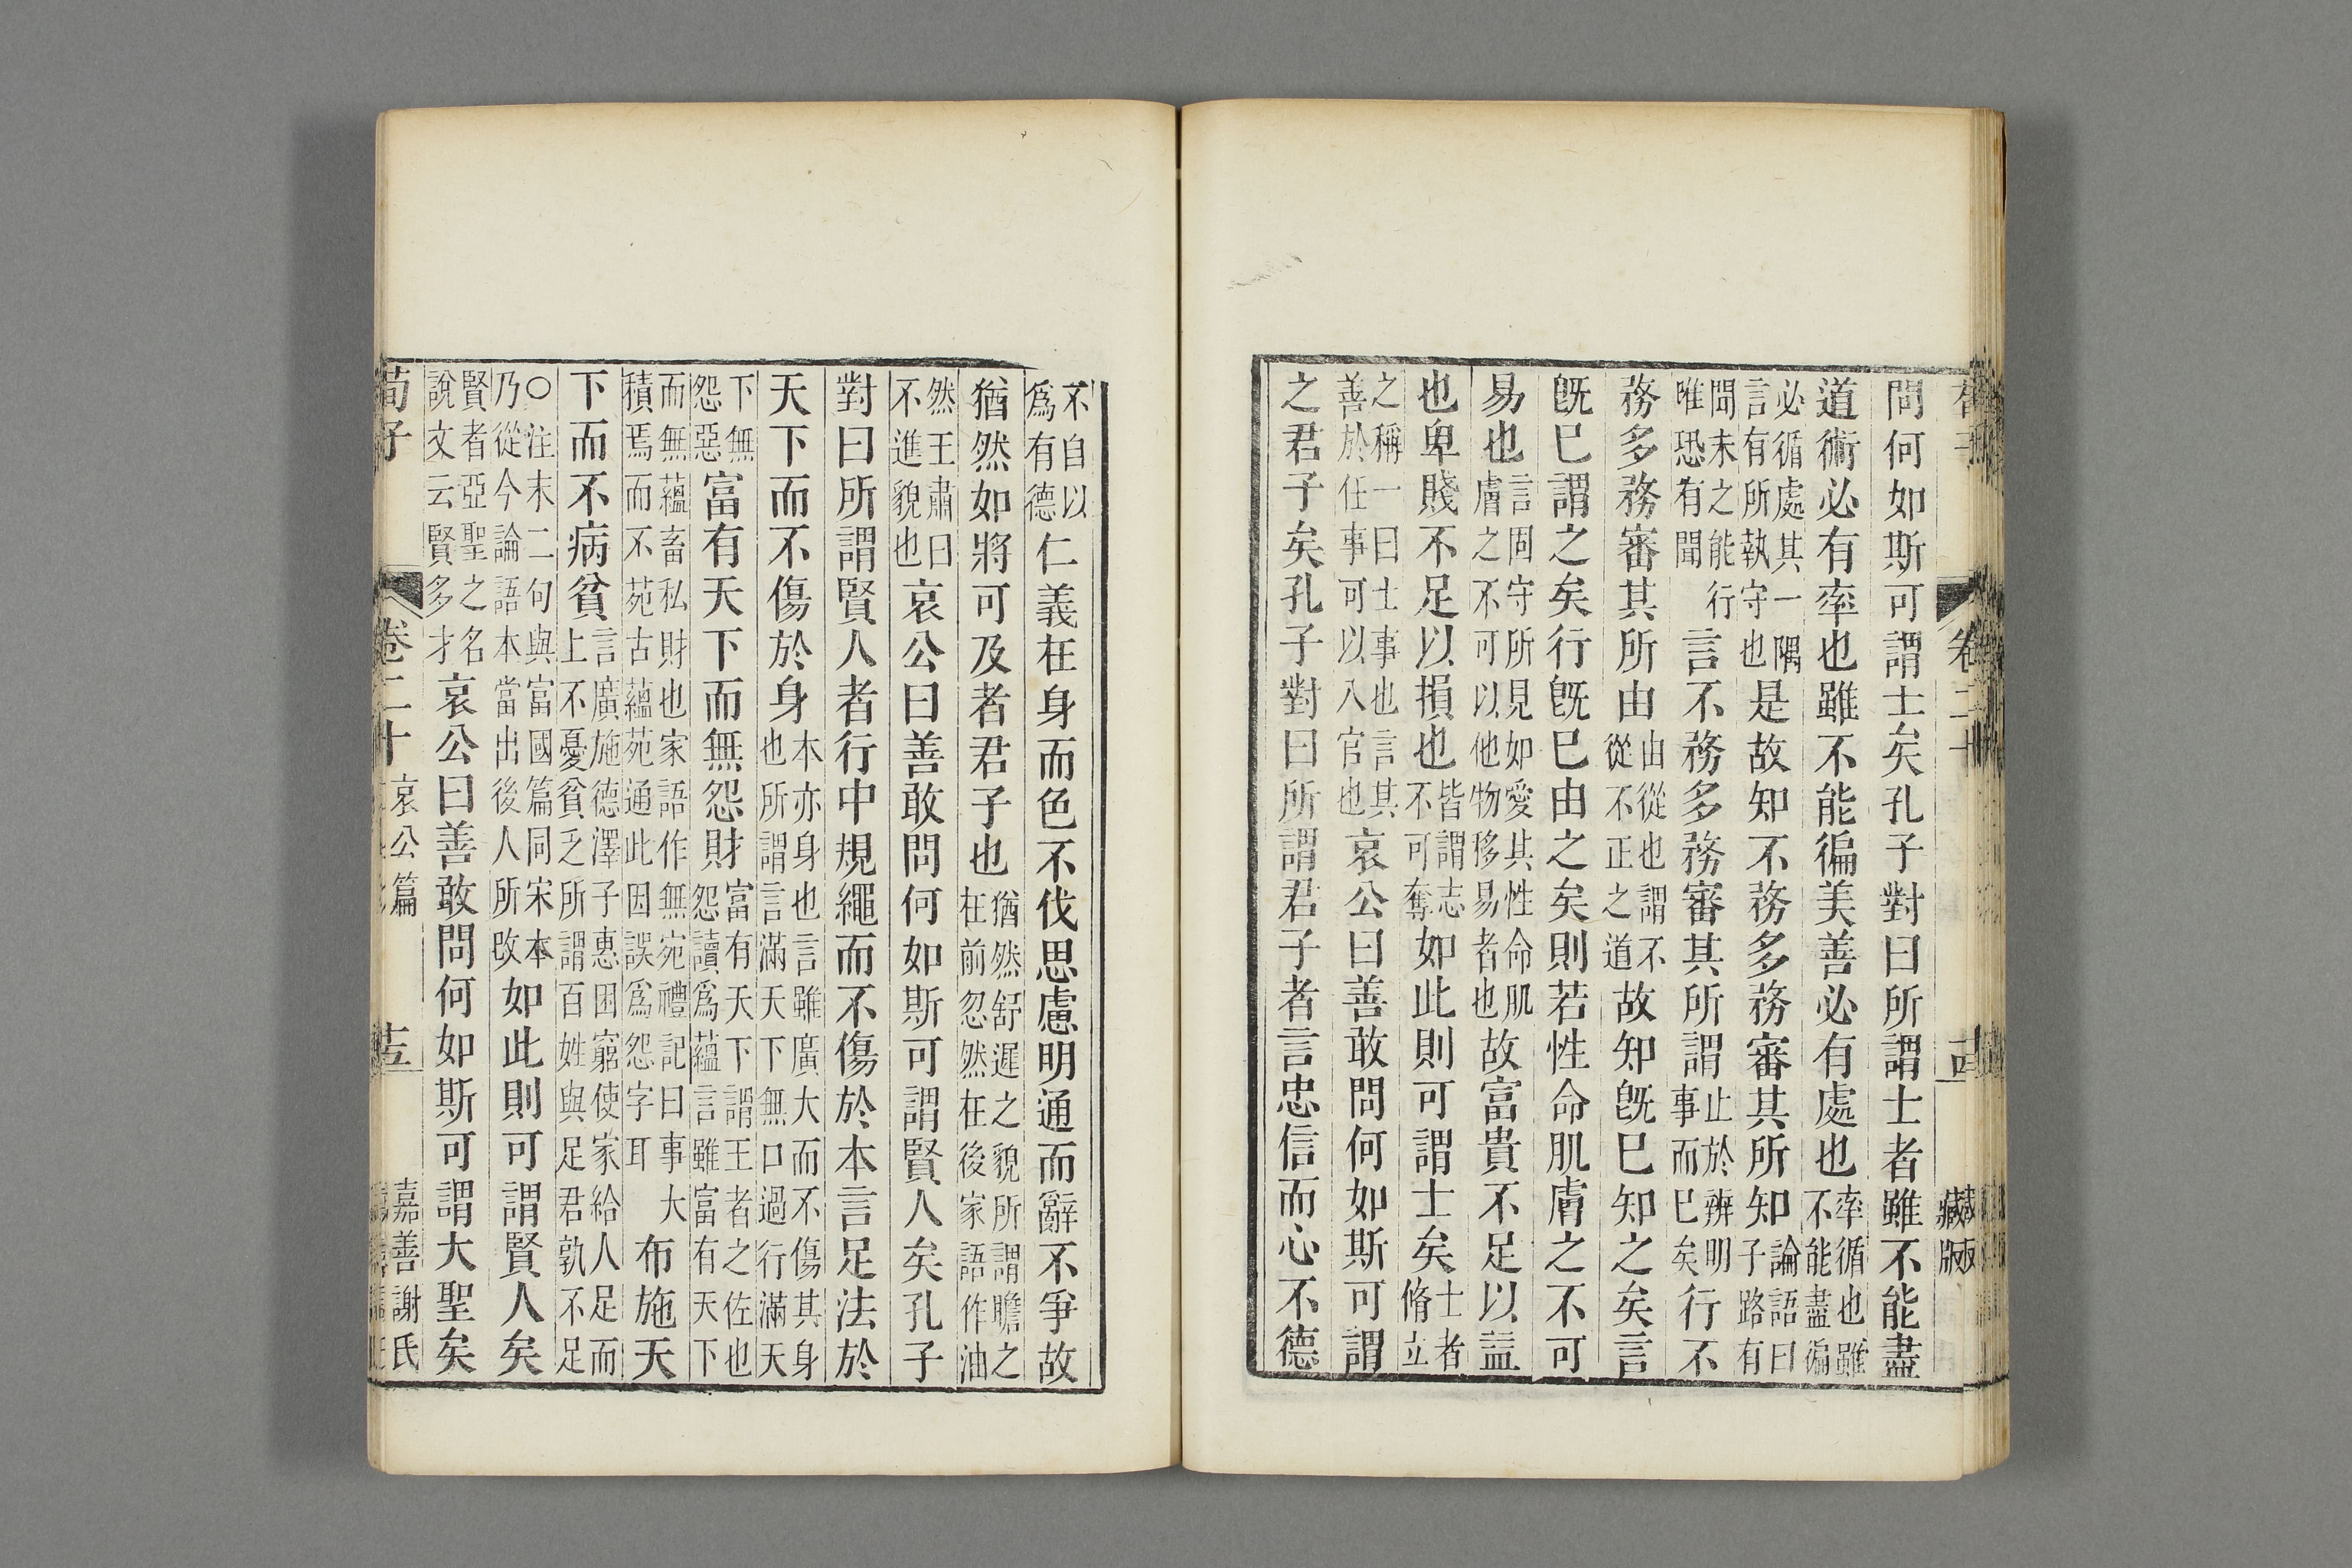 問何如斯可謂士矣孔子對曰所謂士者雖不能盡
道術必有率也雖不能徧美善必有處也率循也雖不能盡徧
必循處其一隅言有所執守也是故知不務多務審其所知論語曰子路有
聞未之能行唯恐有聞言不務多務審其所謂止於辨明事而已矣行不
務多務審其所由由從也謂不從不正之道故知旣巳知之矣言
旣巳謂之矣行旣巳由之矣則若性命肌膚之不可
易也言固守所見如愛其性命肌膚之不可以他物移易者也故富貴不足以益
也卑賤不足以損也皆謂志不可奪如此則可謂士矣士者脩立
之稱一曰士事也言其善於任事可以入官也哀公曰善敢問何如斯可謂
之君子矣孔子對曰所謂君子者言忠信而心不德
不自以爲有德仁義在身而色不伐思慮明通而辭不爭故
猶然如將可及者君子也猶然舒遲之貌所謂瞻之在前忽然在後家語作油
然王肅曰不進貌也哀公曰善敢問何如斯可謂賢人矣孔子
對曰所謂賢人者行中規繩而不傷於本言足法於
天下而不傷於身本亦身也言雖廣大而不傷其身也所謂言滿天下無口過行滿天
下無怨惡富有天下而無怨財富有天下謂王者之佐也怨讀爲蘊言雖富有天下
而無蘊畜私財也家語作無宛禮記曰事大積焉而不苑古蘊苑通此因誤爲怨字耳布施天
下而不病貧言廣施德澤子惠困窮使家給人足而上不憂貧乏所謂百姓與足君孰不足
○注末二句與富國篇同宋本乃從今論語本當出後人所改如此則可謂賢人矣
賢者亞聖之名說文云賢多才哀公曰善敢問何如斯可謂大聖矣
荀子 卷二十 哀公篇 十五 嘉善謝氏